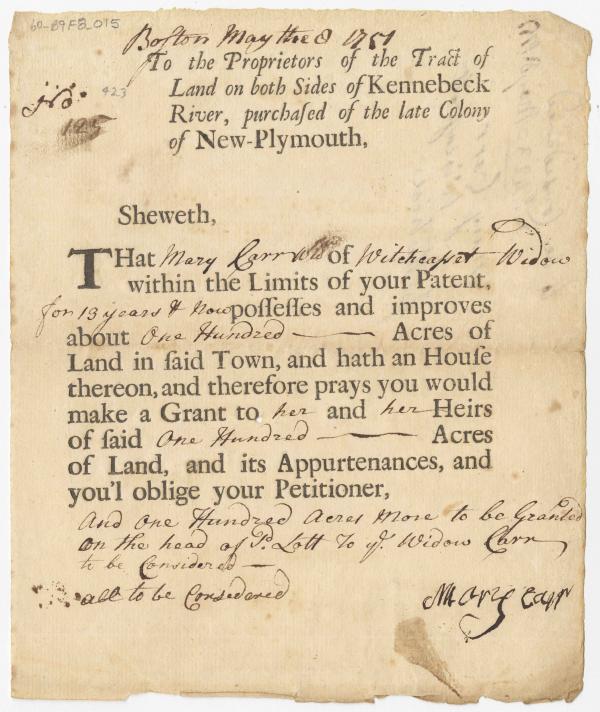 60-89F3_015
Boston May the 8 1751
To the Proprietors of the Tract of
Land on both Sides of Kennebeck
River, purchaſed of the late Colony
of New-Plymouth,
No.
423
125
Sheweth,
THat Mary Carr Wid of Witchcaſset Widow
within the Limits of your Patent,
for 13 years & Now poſſeſſes and improves
about One Hundred Acres of
Land in ſaid Town, and hath an Houſe
thereon, and therefore prays you would
make a Grant to her and her Heirs
of ſaid One Hundred Acres
of Land, and its Appurtenances, and
you'l oblige your Petitioner,
And One Hundred Acres More to be Granted
On the head of Sd. Lott To ye. Widow Carr
to be Considered —
all to be Consedered
Mary Carr